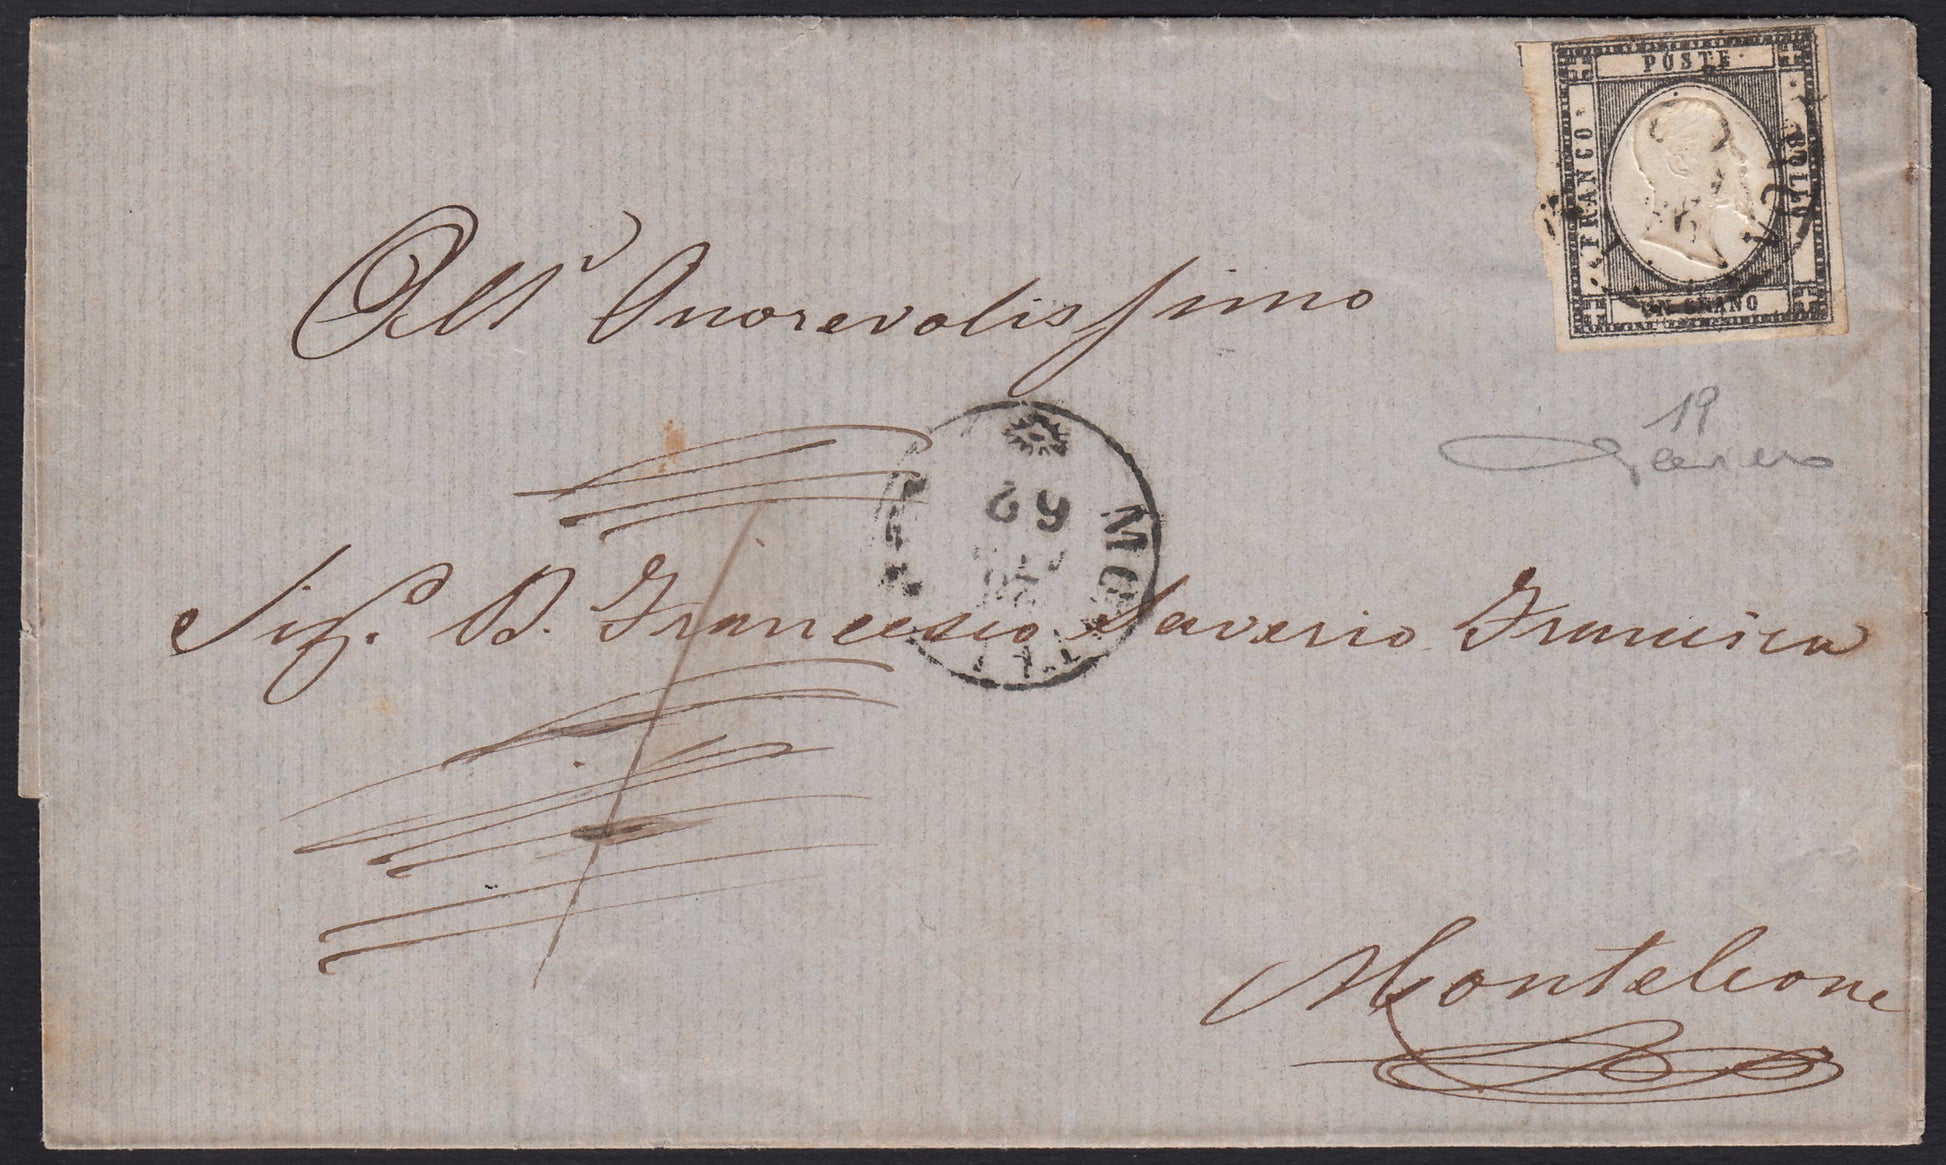 POSTE
FRANCO
BOLLO
UN GRANO
All' Onorevolissimo
19
62
Sig.r D. Francesco Saverio Francica
Monteleone